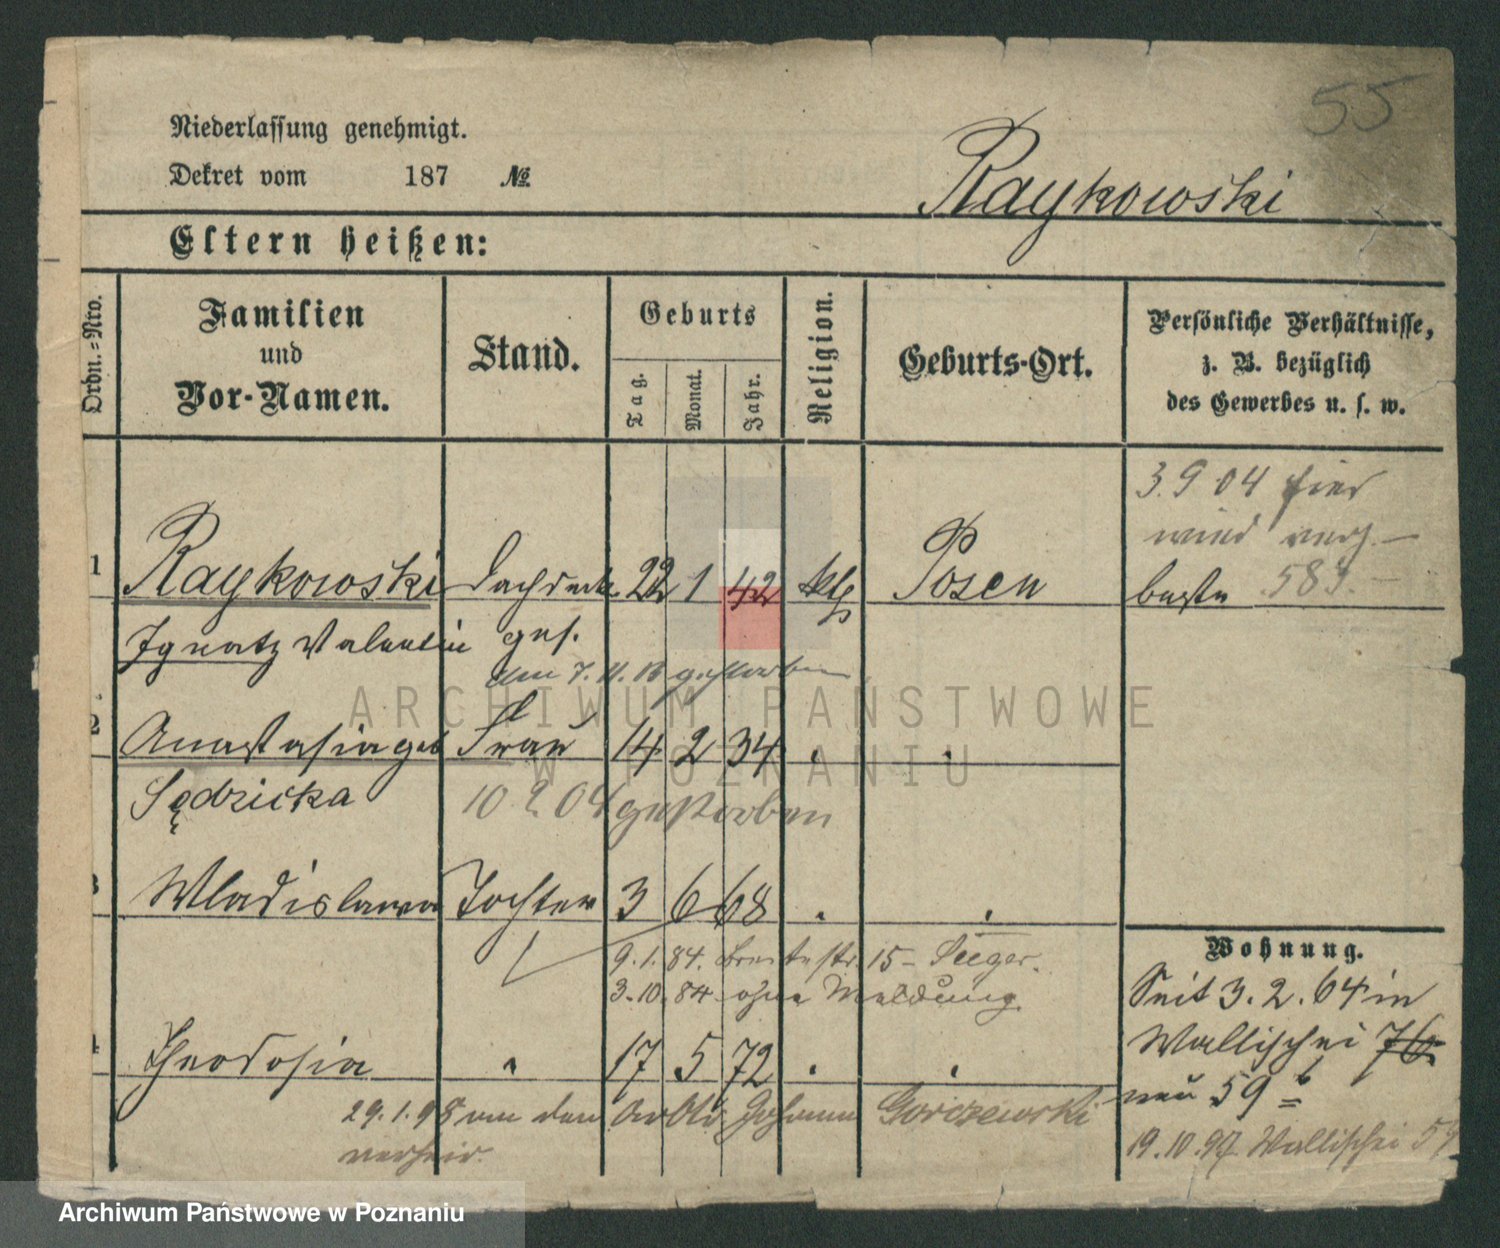 55
Niederlassung genehmigt.
Dekret vom 187 №
Raykowski
Eltern heißen:
Ordn.-Nro.
Familien und Vor-Namen.
Stand.
Geburts
Tag.
Monat.
Jahr.
Religion.
Geburts-Ort.
Persönliche Verhältnisse,
z. B. bezüglich
des Gewerbes u. s. w.
3.9 04 hier
wird
1 Raykowski Dachdeck 22 1 42 kth Posen
583.
Ignatz Valentin ges.
am 7. 11. gestorben
2 Anastasia geb Frau 14 2 34 . .
Sędzicka 10 2 04 gestorben
3 Wladislawa Tochter 3 6 68 . .
9.1.84. Breitestr. 15 – Seeger.
3.10.84 ohne Meldung
Wohnung.
Seit 3.2.64 in
Wallischei 76
neu 59 b
4 Theodosia " 17 5 72 . .
29.1.98 an den Johann Gorczewski
verheir.
19.10.97 Wallischei 59
ARCHIWUM PAŃSTWOWE
W POZNANIU
Archiwum Państwowe w Poznaniu